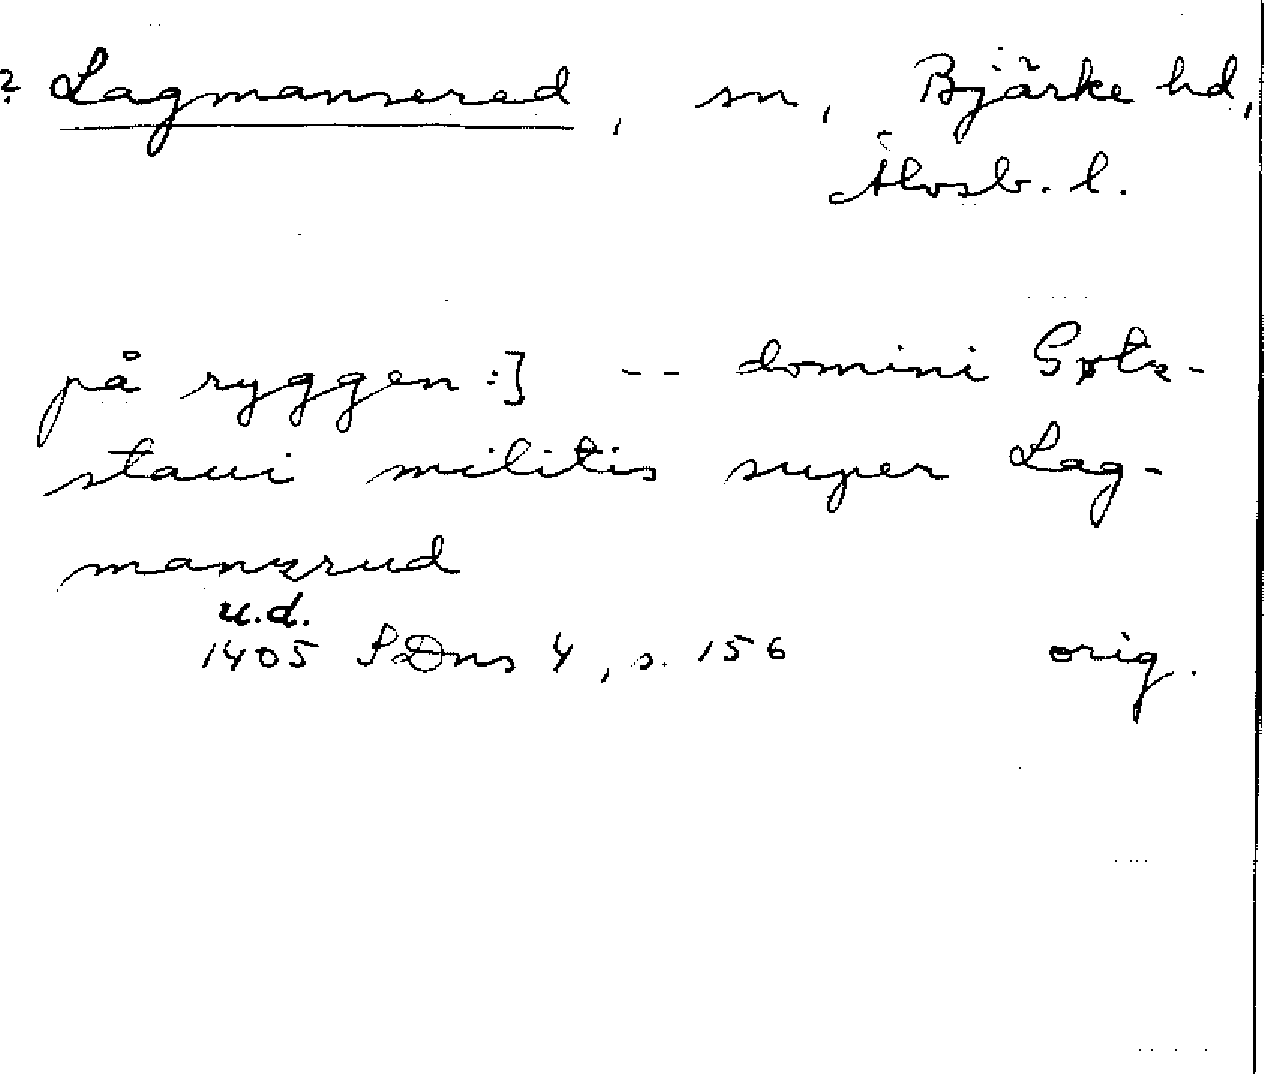 ? Lagmansered, sn, Bjärke hd,
Älvsb. l.
på ryggen :] -- domini Gøtz-
staui militis super Lag-
manzrud
u.d.
1405 SDns 4, s. 156 orig.